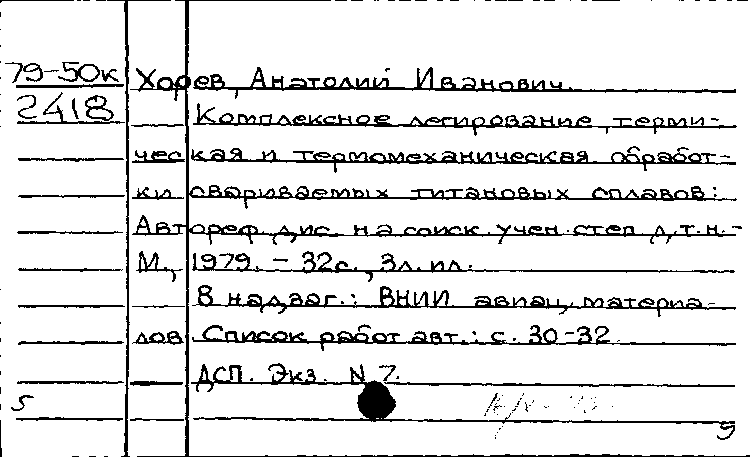 79-50к Хорев, Анатолий Иванович.
2418 Комплексное легирование, терми-
ческая и термомеханическая обработ-
ки свариваемых титановых сплавов:
Автореф. дис. на соиск. учен. степ. д.т.н.-
М., 1979. - 32с., 3л. ил.
В надзаг.: ВНИИ авиац. материа-
лов. Список работ авт.: с. 30-32
ДСП. Экз. N 7.
5
9